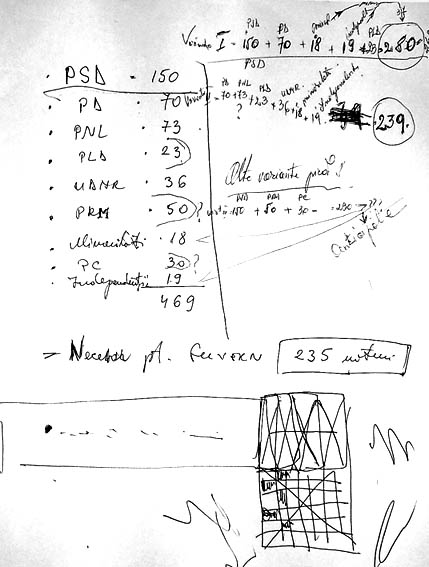 PSD PD minorit. independ. PLD
Varianta I = 150 + 70 + 18 + 19 + 23 = 280
PSD
PD PNL PLD UDMR minoritati Independenti
Varianta II = 70 + 73 + 23 + 36 + 18 + 19 = 239
?
• PSD • 150
• PD • 70
• PNL • 73
• PLD • 23
• UDMR • 36
• PRM • 50 ?
• Minoritati • 18
• PC • 30 ?
• Independenti 19
469
Alte variante
PSD PRM PC
150 + 50 + 30 = 230 ??
= Necesar pt. GUVERN 235 voturi